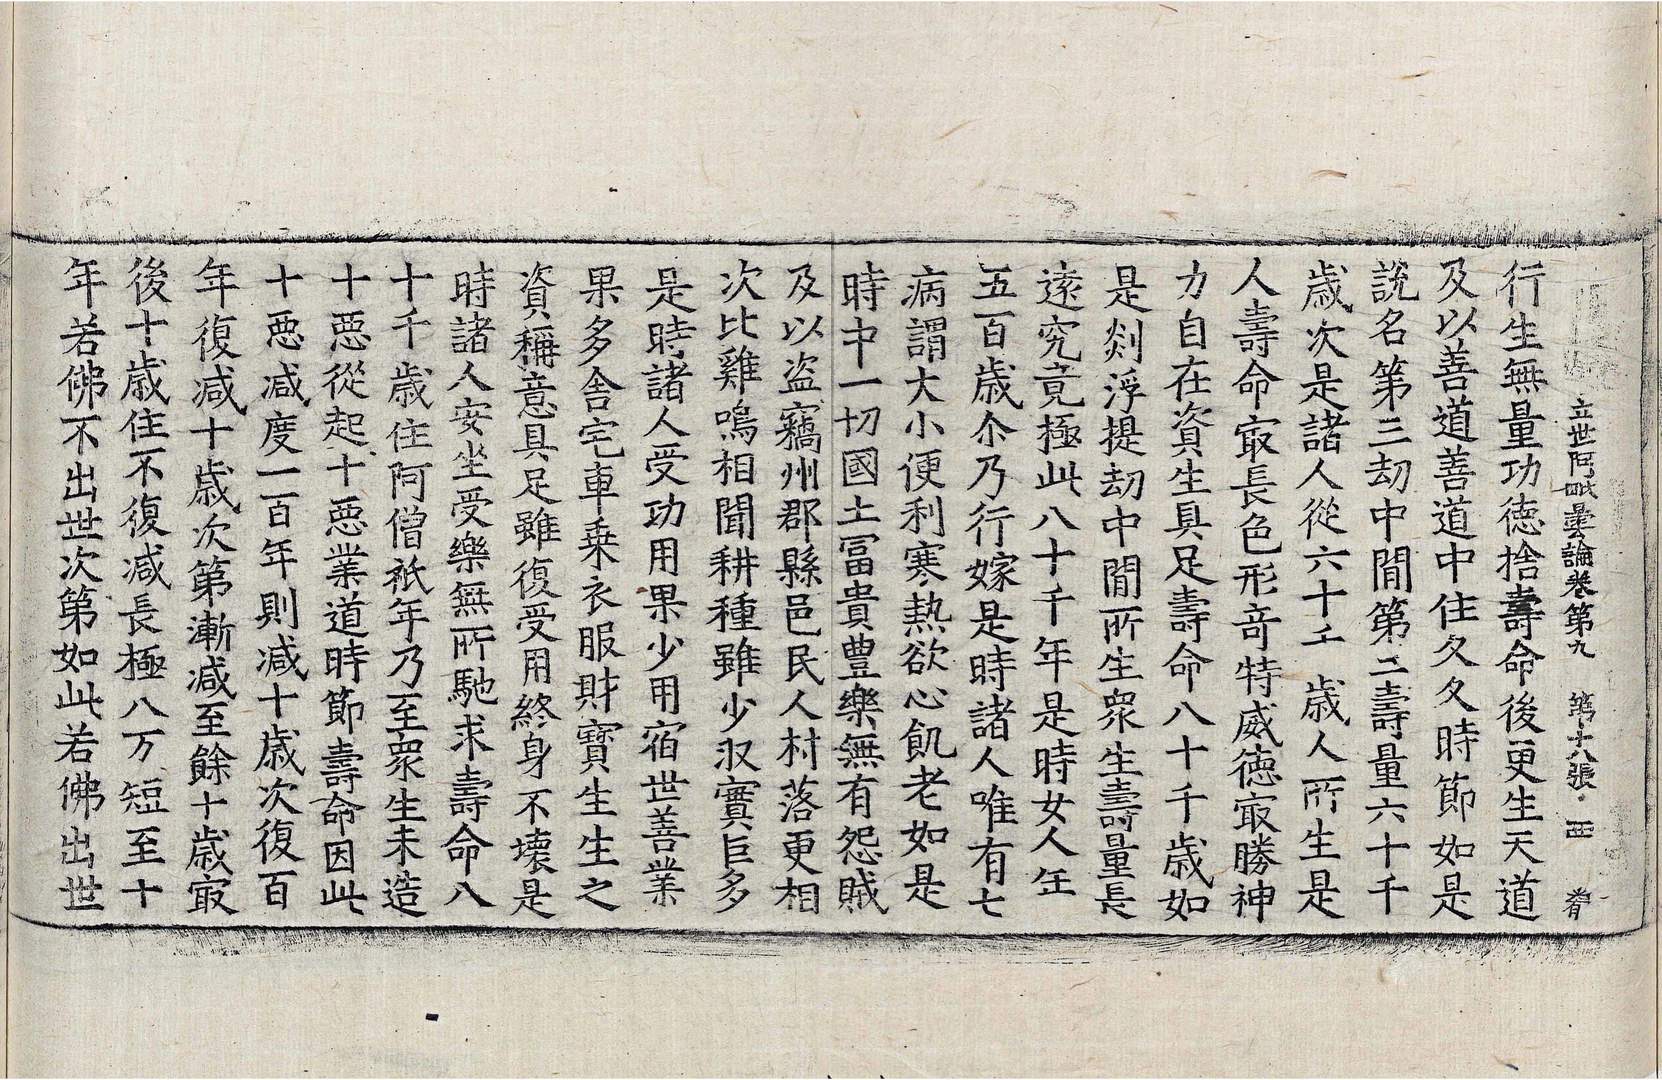 立世阿毗曇論卷第九　第十八張　西
行生無量功德捨壽命後更生天道
及以善道善道中住久久時節如是
說名第三劫中間第二壽量六十千
歲次是諸人從六十千歲人所生是
人壽命㝡長色形竒特威德㝡勝神
力自在資生具足壽命八十千歲如
是剡浮提劫中間所生眾生壽量長
遠究竟極此八十千年是時女人年
五百歲尒乃行嫁是時諸人唯有七
病謂大小便利寒熱欲心飢老如是
時中一切國土冨貴豊樂無有怨賊
及以盜竊州郡縣邑民人村落更相
次比雞鳴相聞耕種雖少収實巨多
是時諸人受功用果少用宿世善業
果多舍宅車乗衣服財寶生生之
資稱意具足雖復受用終身不壞是
時諸人安坐受樂無所馳求壽命八
十千歲住阿僧祇年乃至眾生未造
十惡從起十惡業道時節壽命因此
十惡减度一百年則减十歲次復百
年復减十歲次第漸减至餘十歲㝡
後十歲住不復减長極八万短至十
年若佛不出世次第如此若佛出世